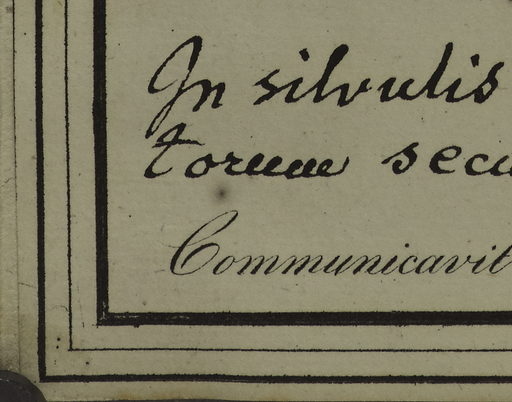 In silvulis
torum secu
Communicavit